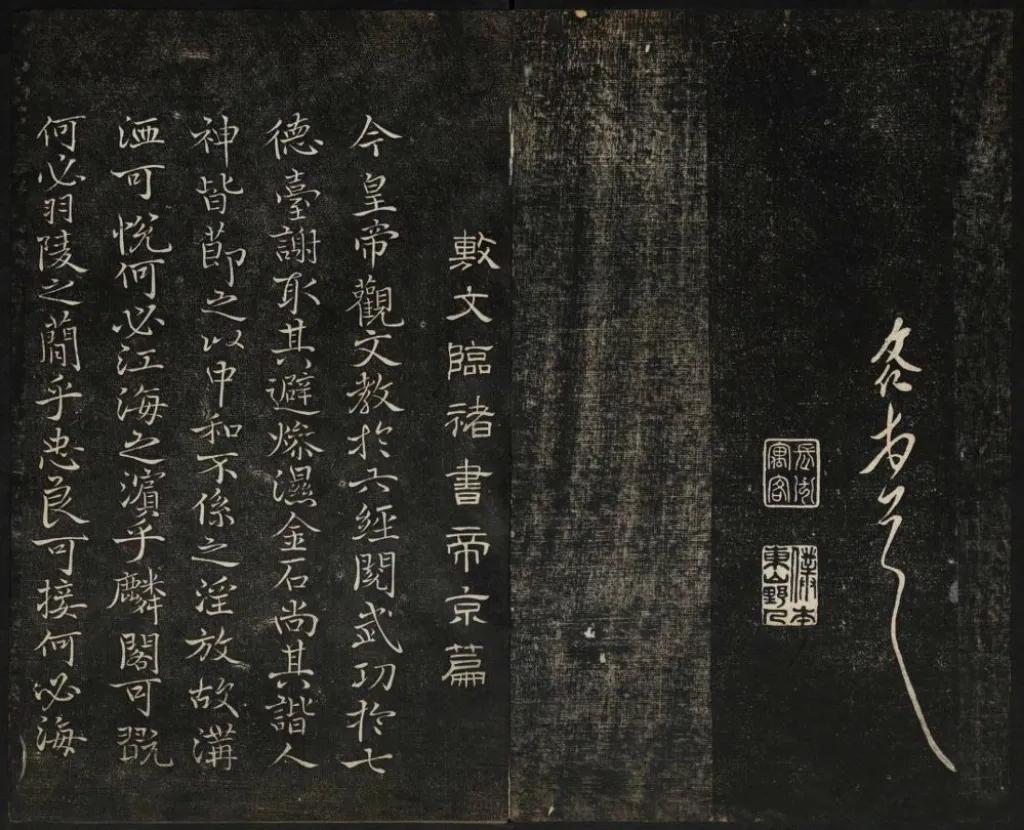 僕本東山野人
敷文臨褚書帝京篇
今皇帝觀文教於六經閱武功於七
德臺謝取其避燥濕金石尚其諧人
神皆節之以中和不係之淫放故溝
洫可悅何必江海之濱乎麟閣可翫
何必羽陵之簡乎忠良可接何必海